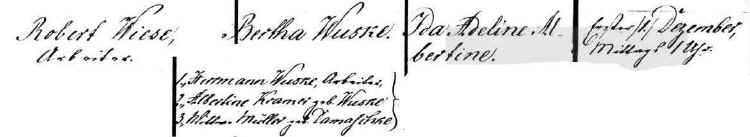 Robert Wiese,
Arbeiter.
Bertha Wuske.
Ida Adeline Al-
bertine.
Erster /1./ Dezember,
Mittags 1 Uhr.
1, Herrmann Wuske, Arbeiter,
2, Albertine Kramer geb. Wuske
3, Müller geb. Damaschke